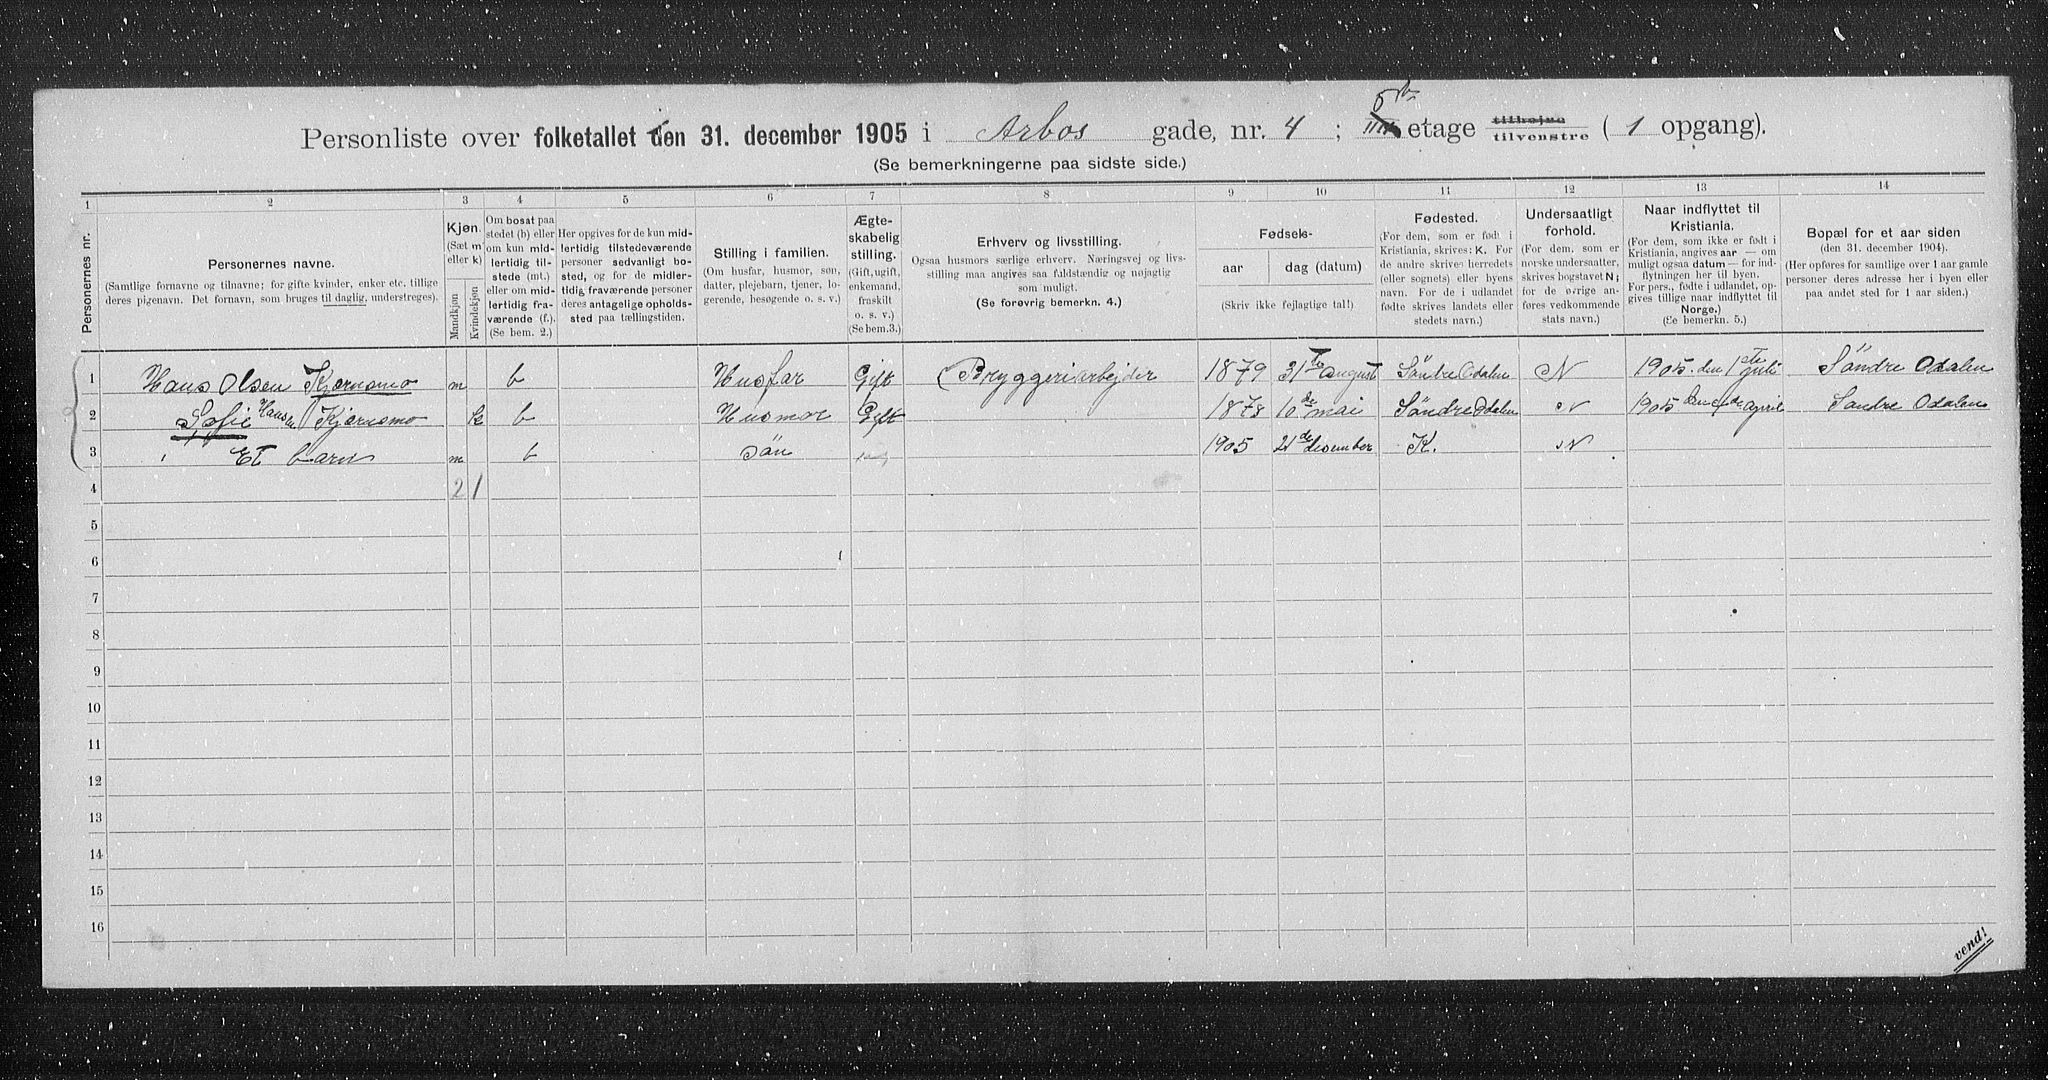 Personliste over folketallet den 31. december 1905 i Arbos gade, nr. 4; 5te etage tilhøjre tilvenstre (1 opgang).
(Se bemerkningerne paa sidste side.)
1 2 3 4 5 6 7 8 9 10 11 12 13 14
Personernes nr.
Personernes navne.
(Samtlige fornavne og tilnavne; for gifte kvinder, enker etc. tillige
deres pigenavn. Det fornavn, som bruges til daglig, understreges).
Kjøn.
(Sæt m
eller k)
Mandkjøn
Kvindekjøn
Om bosat paa
stedet (b) eller
om kun mid-
lertidig til-
stede (mt.)
eller om mid-
lertidig fra-
værende (f.).
(Se bem. 2.)
Her opgives for de kun mid-
lertidig tilstedeværende
personer sedvanligt bo-
sted, og for de midler-
tidig fraværende personer
deres antagelige opholds-
sted paa tællingstiden.
Stilling i familien.
(Om husfar, husmor, søn,
datter, plejebarn, tjener, lo-
gerende, besøgende o. s. v.)
Ægte-
skabelig
stilling.
(Gift, ugift,
enkemand,
fraskilt
o. s. v.)
(Se bem.3.)
Erhverv og livsstilling.
Ogsaa husmors særlige erhverv. Næringsvej og livs-
stilling maa angives saa fuldstændig og nøjagtig
som muligt.
(Se forøvrig bemerkn. 4.)
Fødsels-
aar dag (datum)
(Skriv ikke fejlagtige tal!)
Fødested.
(For dem, som er født i
Kristiania, skrives: K. For
de andre skrives herredets
(eller sognets) eller byens
navn. For de i udlandet
fødte skrives landets eller
stedets navn.)
Undersaatligt
forhold.
(For dem, som er
norske undersaatter,
skrives bogstavet N;
for de øvrige an-
føres vedkommende
stats navn.)
Naar indflyttet til
Kristiania.
(For dem, som ikke er født i
Kristiania, angives aar — om
muligt ogsaa datum — for ind-
flytningen her til byen.
For pers., fødte i udlandet, op-
gives tillige naar indflyttet til
Norge.)
(Se bemerkn. 5.)
Bopæl for et aar siden
(den 31. december 1904).
(Her opføres for samtlige over 1 aar gamle
personer deres adresse her i byen eller
paa andet sted for 1 aar siden.)
1 Hans Olsen Kjærnsmo m b Husfar Gift Bryggeriarbejder 1879 31te august Söndre Odalen N 1905. den 1te juli Söndre Odalen
2 Sofie Hansen Kjærnsmo k b Husmor Gift 1878 10de mai Söndre Odalen N 1905 den april Söndre Odalen
3 Et barn m b Sön 1905 21de desember K. N
4 2 1
5
6
7
8
9
10
11
12
13
14
15
16
vend!